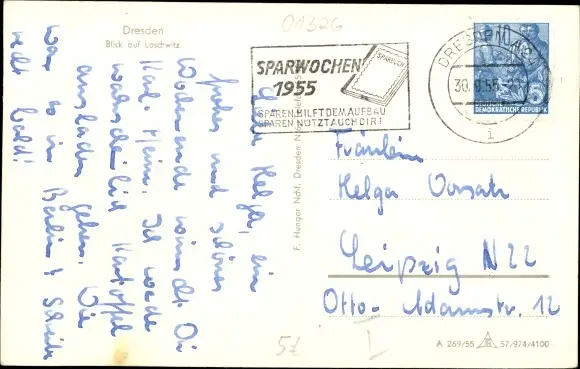 01326
Dresden
Blick auf Loschwitz
SPARWOCHEN
1955
SPARBUCH
SPAREN HILFT DEM AUFBAU
SPAREN NÜTZT AUCH DIR!
DRESDEN
30.
DEMOKRATISCHE REPUBLIK
Liebe Helga, ein
frohes und schönes
Wochenende wünscht Di
Karl-Heinz. Ich werde
wahrscheinlich Kartoffel
ausladen gehen. Wie
war es in Berlin? Schreibe
recht bald!
Fräulein
Helga
Leipzig N22
Otto-Adamstr. 12
F. Hunger Nchf. Dresden
57
A 269/55
57/974/4100